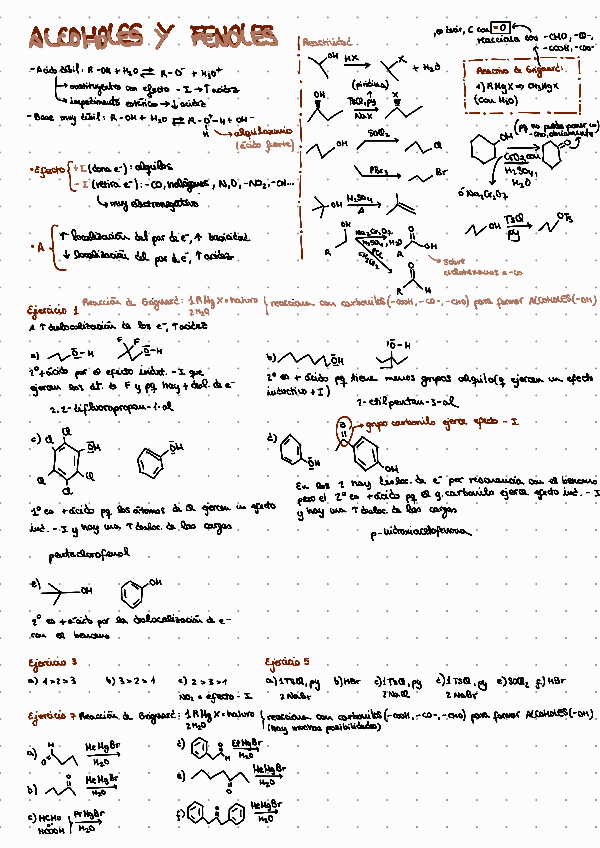 ALCOHOLES Y FENOLES
- Acido débil: R-OH + H2O ⇄ R-O⁻ + H3O⁺
→ sustituyentes con efecto -I → ↑ acidez
→ impedimento estérico → ↓ acidez
- Base muy débil: R-OH + H2O ⇄ R-O⁺-H + OH⁻
H
→ alquiloxonio
(ácido fuerte)
• Efecto
+I (dona e⁻): alquilos
-I (retira e⁻): -CO, halógenos, N, O, -NO2, -OH...
→ muy electronegativo
• A
↑ localización del par de e⁻, ↑ basicidad
↓ localización del par de e⁻, ↑ acidez
Reactividad:
OH HX X + H2O
(piridina)
OH TsCl, py X
NaX
OH SOCl2 Cl
PBr3 Br
OH H2SO4
Δ
OH Na2Cr2O7 O
H2SO4, H2O OH
R PCC R
CH2Cl2 O
R H
, es decir, C con =O
reacciona con -CHO, -CO-,
-COOH, -COO⁻
Reactivo de Grignard:
1) RMgX ⇒ CH3MgX
(con H2O)
OH O
CrO3 con
H2SO4,
H2O
ó Na2Cr2O7
OH TsCl OTs
py
Ejercicio 1
Reacción de Grignard: 1 RMgX = nuevo
2 H2O
reacciona con carbonilos (-COOH, -CO-, -CHO) para formar ALCOHOLES (-OH)
A ↑ deslocalización de los e⁻, ↑ acidez
a) O-H F F O-H
2º + ácido por el efecto induct. -I que
ejercen los át. de F y pq hay + desl. de e⁻
2,2-difluoropropan-1-ol
b) OH O-H
2º es + ácido pq tiene menos grupos alquilo (q ejercen un efecto
inductivo +I)
3-etilpentan-3-ol
c) Cl Cl OH Cl Cl Cl OH
1º es + ácido pq los átomos de Cl ejercen un efecto
ind. -I y hay una ↑ desloc. de las cargas
pentaclorofenol
d) OH O OH
→ grupo carbonilo ejerce efecto -I
En los 2 hay desloc. de e⁻ por resonancia con el benceno
pero el 2º es + ácido pq el g. carbonilo ejerce efecto ind. -I
y hay una ↑ desloc. de las cargas
p-hidroxiacetofenona
e) OH OH
2º es + ácido por la deslocalización de e⁻
con el benceno
Ejercicio 3
a) 1 > 2 > 3 b) 3 > 2 > 1 c) 2 > 3 > 1
NO2 = efecto -I
Ejercicio 5
a) 1 TsCl, py b) HBr c) 1 TsCl, py d) 1 TsCl, py e) SOCl2 f) HBr
2 NaBr 2 NaCl 2 NaBr
Ejercicio 7 Reacción de Grignard: 1 RMgX = nuevo
2 H2O
reacciona con carbonilos (-COOH, -CO-, -CHO) para formar ALCOHOLES (-OH)
(hay muchas posibilidades)
a) O H MeMgBr
H2O
b) O MeMgBr
H2O
c) HCHO PrMgBr
HCOOH H2O
d) O H EtMgBr
H2O
e) O MeMgBr
H2O
f) O MeMgBr
H2O